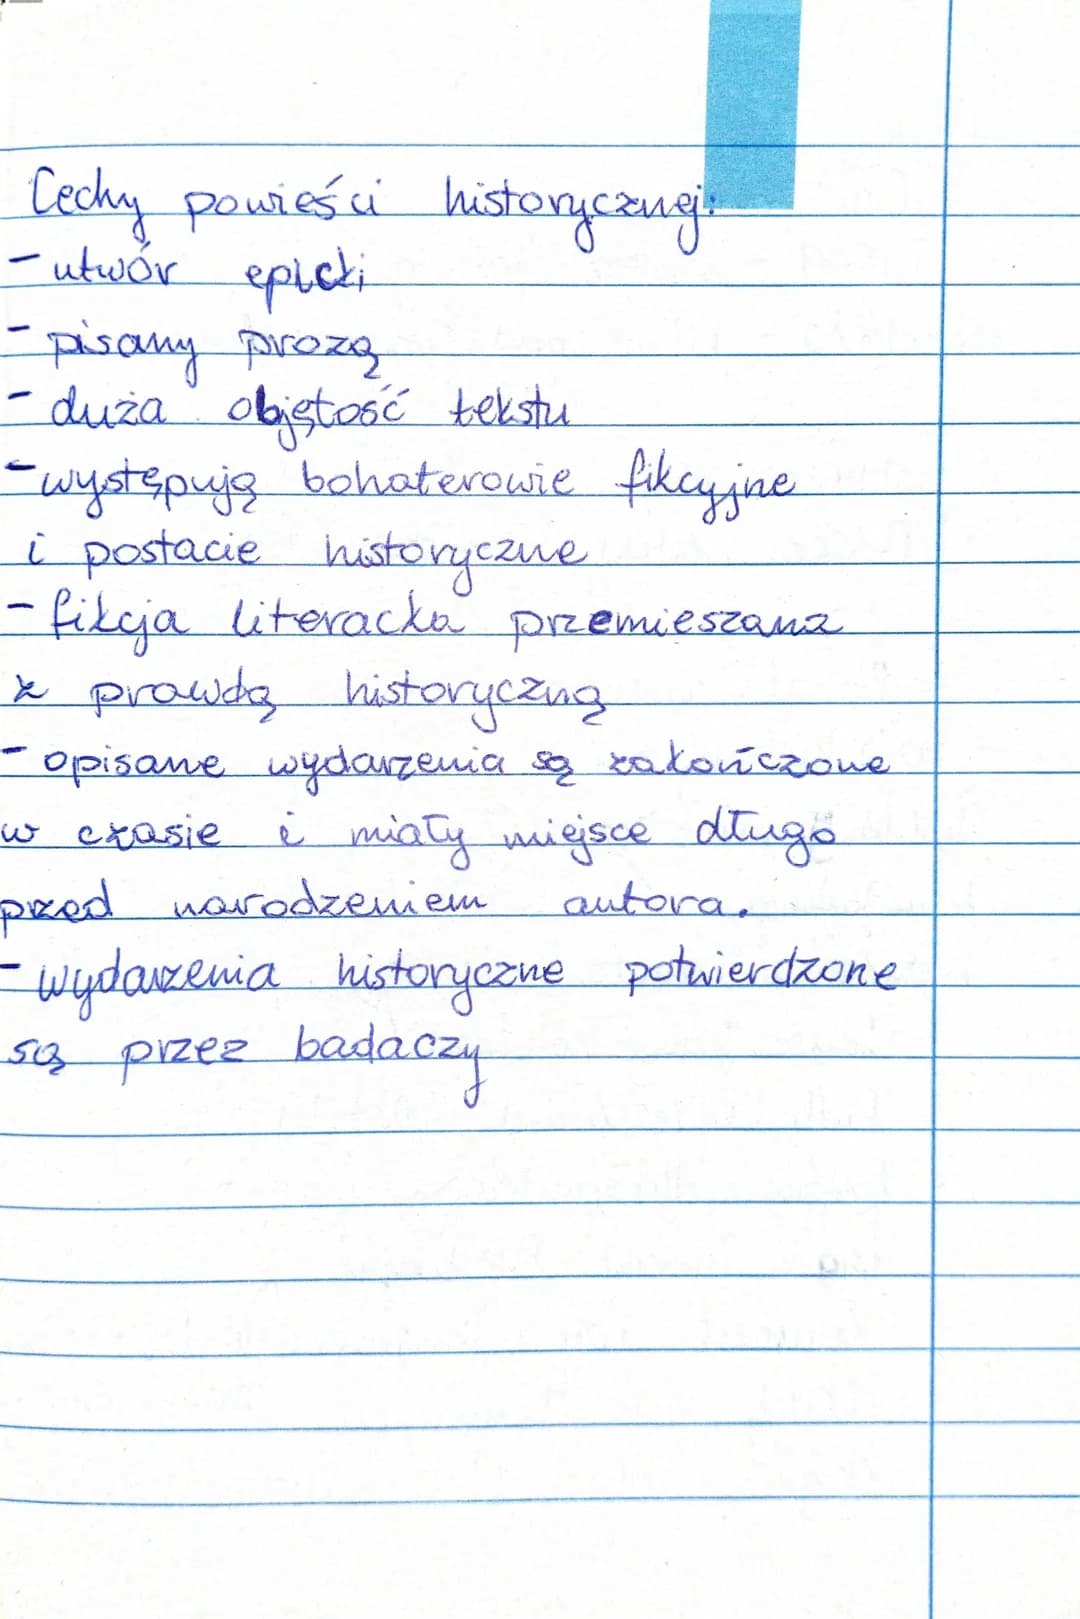 Cechy powieści historycznej:
- utwór epicki
- pisany prozą
- duża objętość tekstu
- występują bohaterowie fikcyjne
i postacie historyczne
- fikcja literacka przemieszana
z prawdą historyczną
- opisane wydarzenia są zakończone
w czasie i miały miejsce długo
przed narodzeniem autora.
- wydarzenia historyczne potwierdzone
są przez badaczy